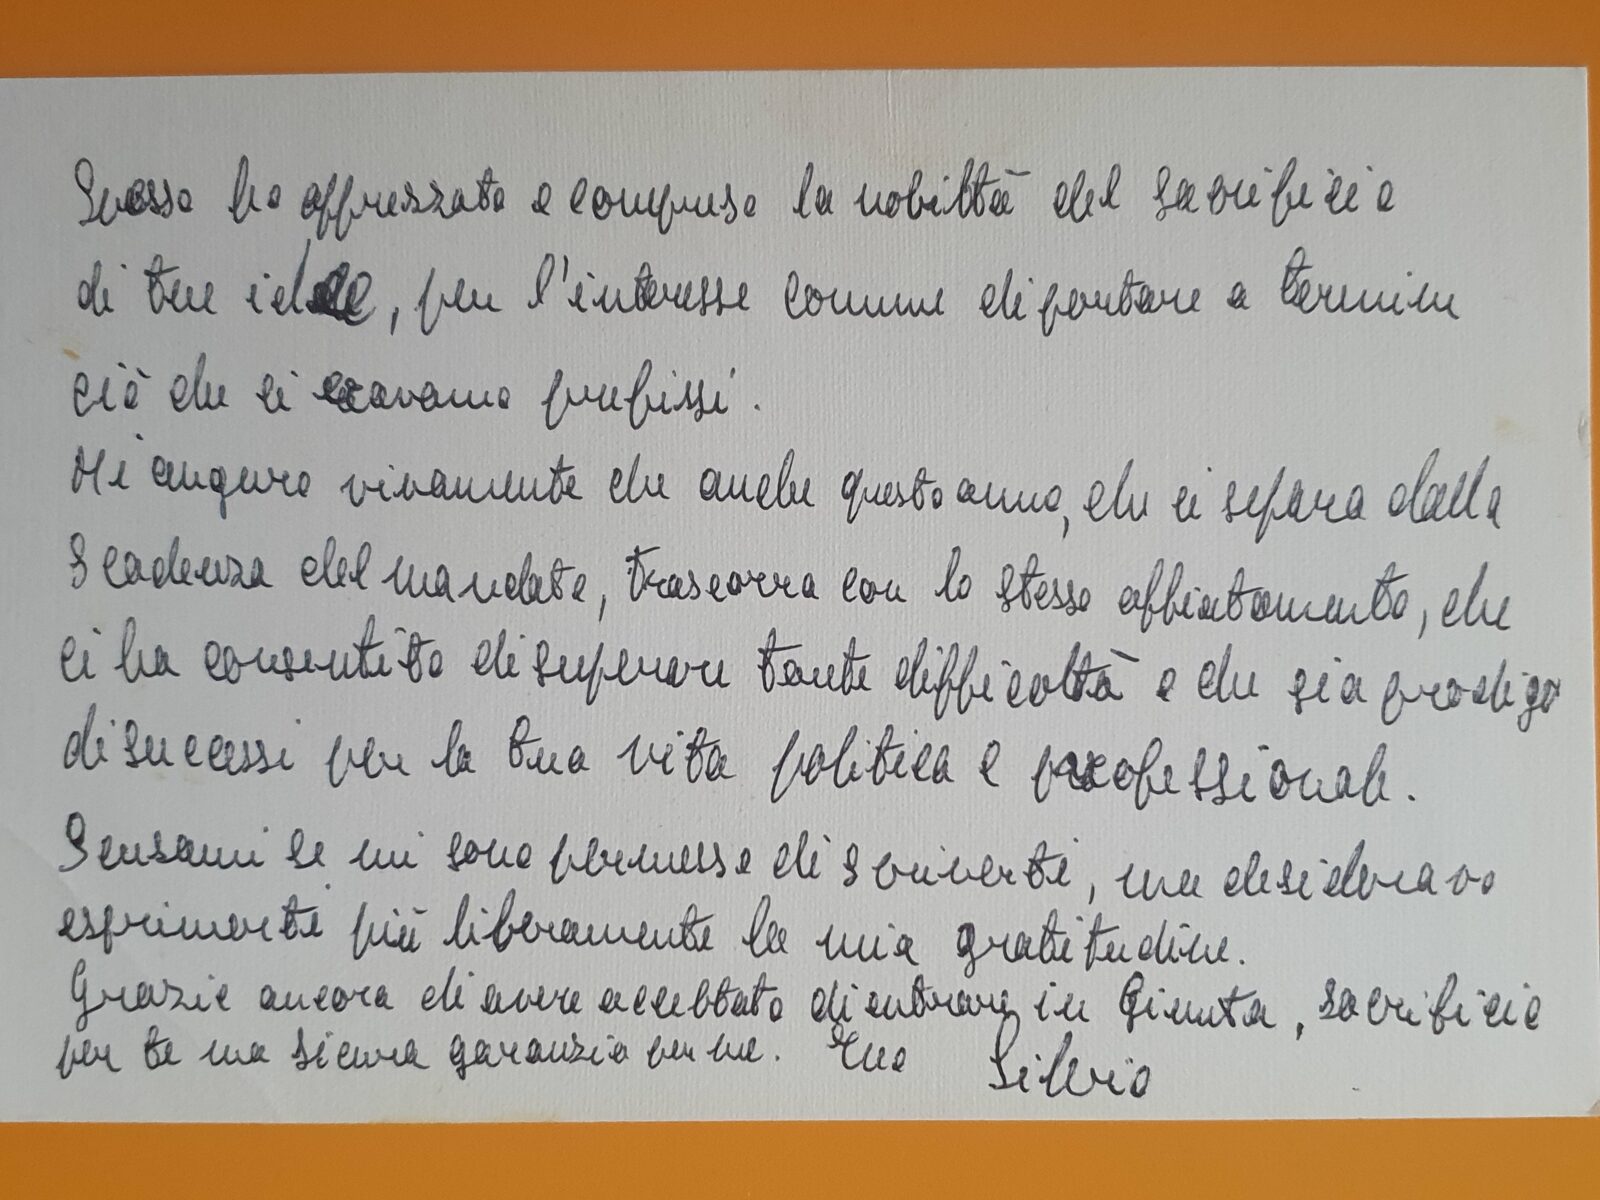 Spesso ho apprezzato e compreso la nobiltà del sacrificio
di tue idee, per l'interesse comune di portare a termine
ciò che ci eravamo prefissi.
Mi auguro vivamente che anche questo anno, che ci separa dalla
scadenza del mandato, trascorra con lo stesso affiatamento, che
ci ha consentito di superare tante difficoltà e che sia prodigo
di successi per la tua vita politica e professionale.
Scusami se mi sono permesso di scriverti, ma desideravo
esprimerti più liberamente la mia gratitudine.
Grazie ancora di avere accettato di entrare in Giunta, sacrificio
per te ma sicura garanzia per me. Tuo Silvio